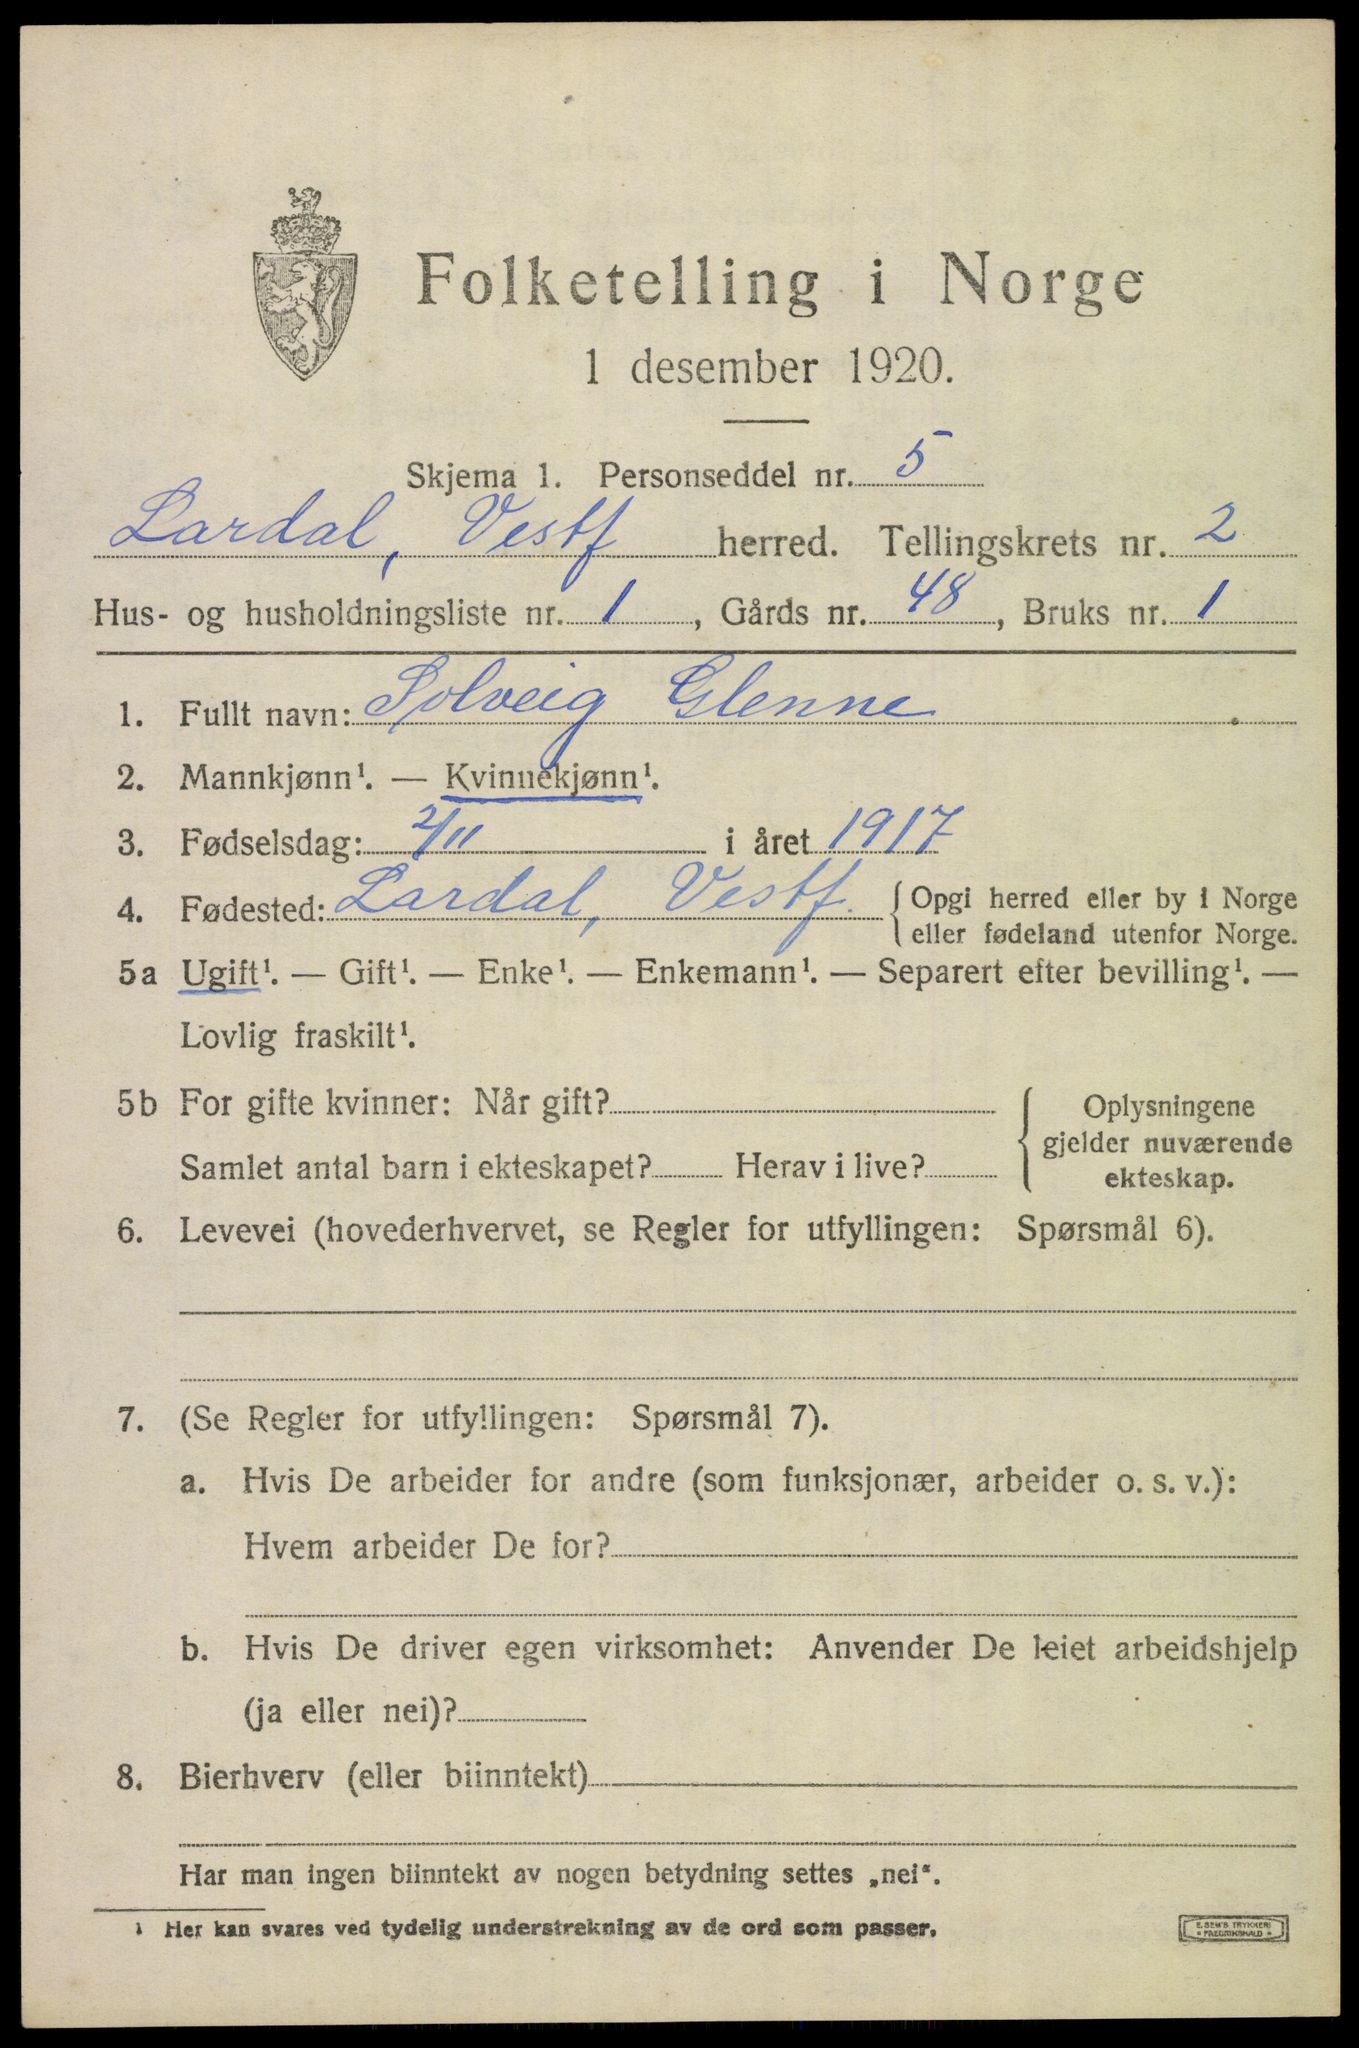 Folketelling i Norge
1 desember 1920.
Skjema 1. Personseddel nr. 5
Lardal, Vestf herred. Tellingskrets nr. 2
Hus- og husholdningsliste nr. 1, Gårds nr. 48, Bruks nr. 1
1. Fullt navn: Solveig Glenne
2. Mannkjønn¹. — Kvinnekjønn¹.
3. Fødselsdag: 2/11 i året 1917
4. Fødested: Lardal, Vestf. { Opgi herred eller by i Norge
eller fødeland utenfor Norge.
5a Ugift¹. — Gift¹. — Enke¹. — Enkemann¹. — Separert efter bevilling¹. —
Lovlig fraskilt¹.
5b For gifte kvinner: Når gift?
Samlet antal barn i ekteskapet? Herav i live?
{ Oplysningene
gjelder nuværende
ekteskap.
6. Levevei (hovederhvervet, se Regler for utfyllingen: Spørsmål 6).
7. (Se Regler for utfyllingen: Spørsmål 7).
a. Hvis De arbeider for andre (som funksjonær, arbeider o. s. v.):
Hvem arbeider De for?
b. Hvis De driver egen virksomhet: Anvender De leiet arbeidshjelp
(ja eller nei)?
8. Bierhverv (eller biinntekt)
Har man ingen biinntekt av nogen betydning settes „nei“.
¹ Her kan svares ved tydelig understrekning av de ord som passer.
E. SEM'S TRYKKERI
• FREDRIKSHALD •